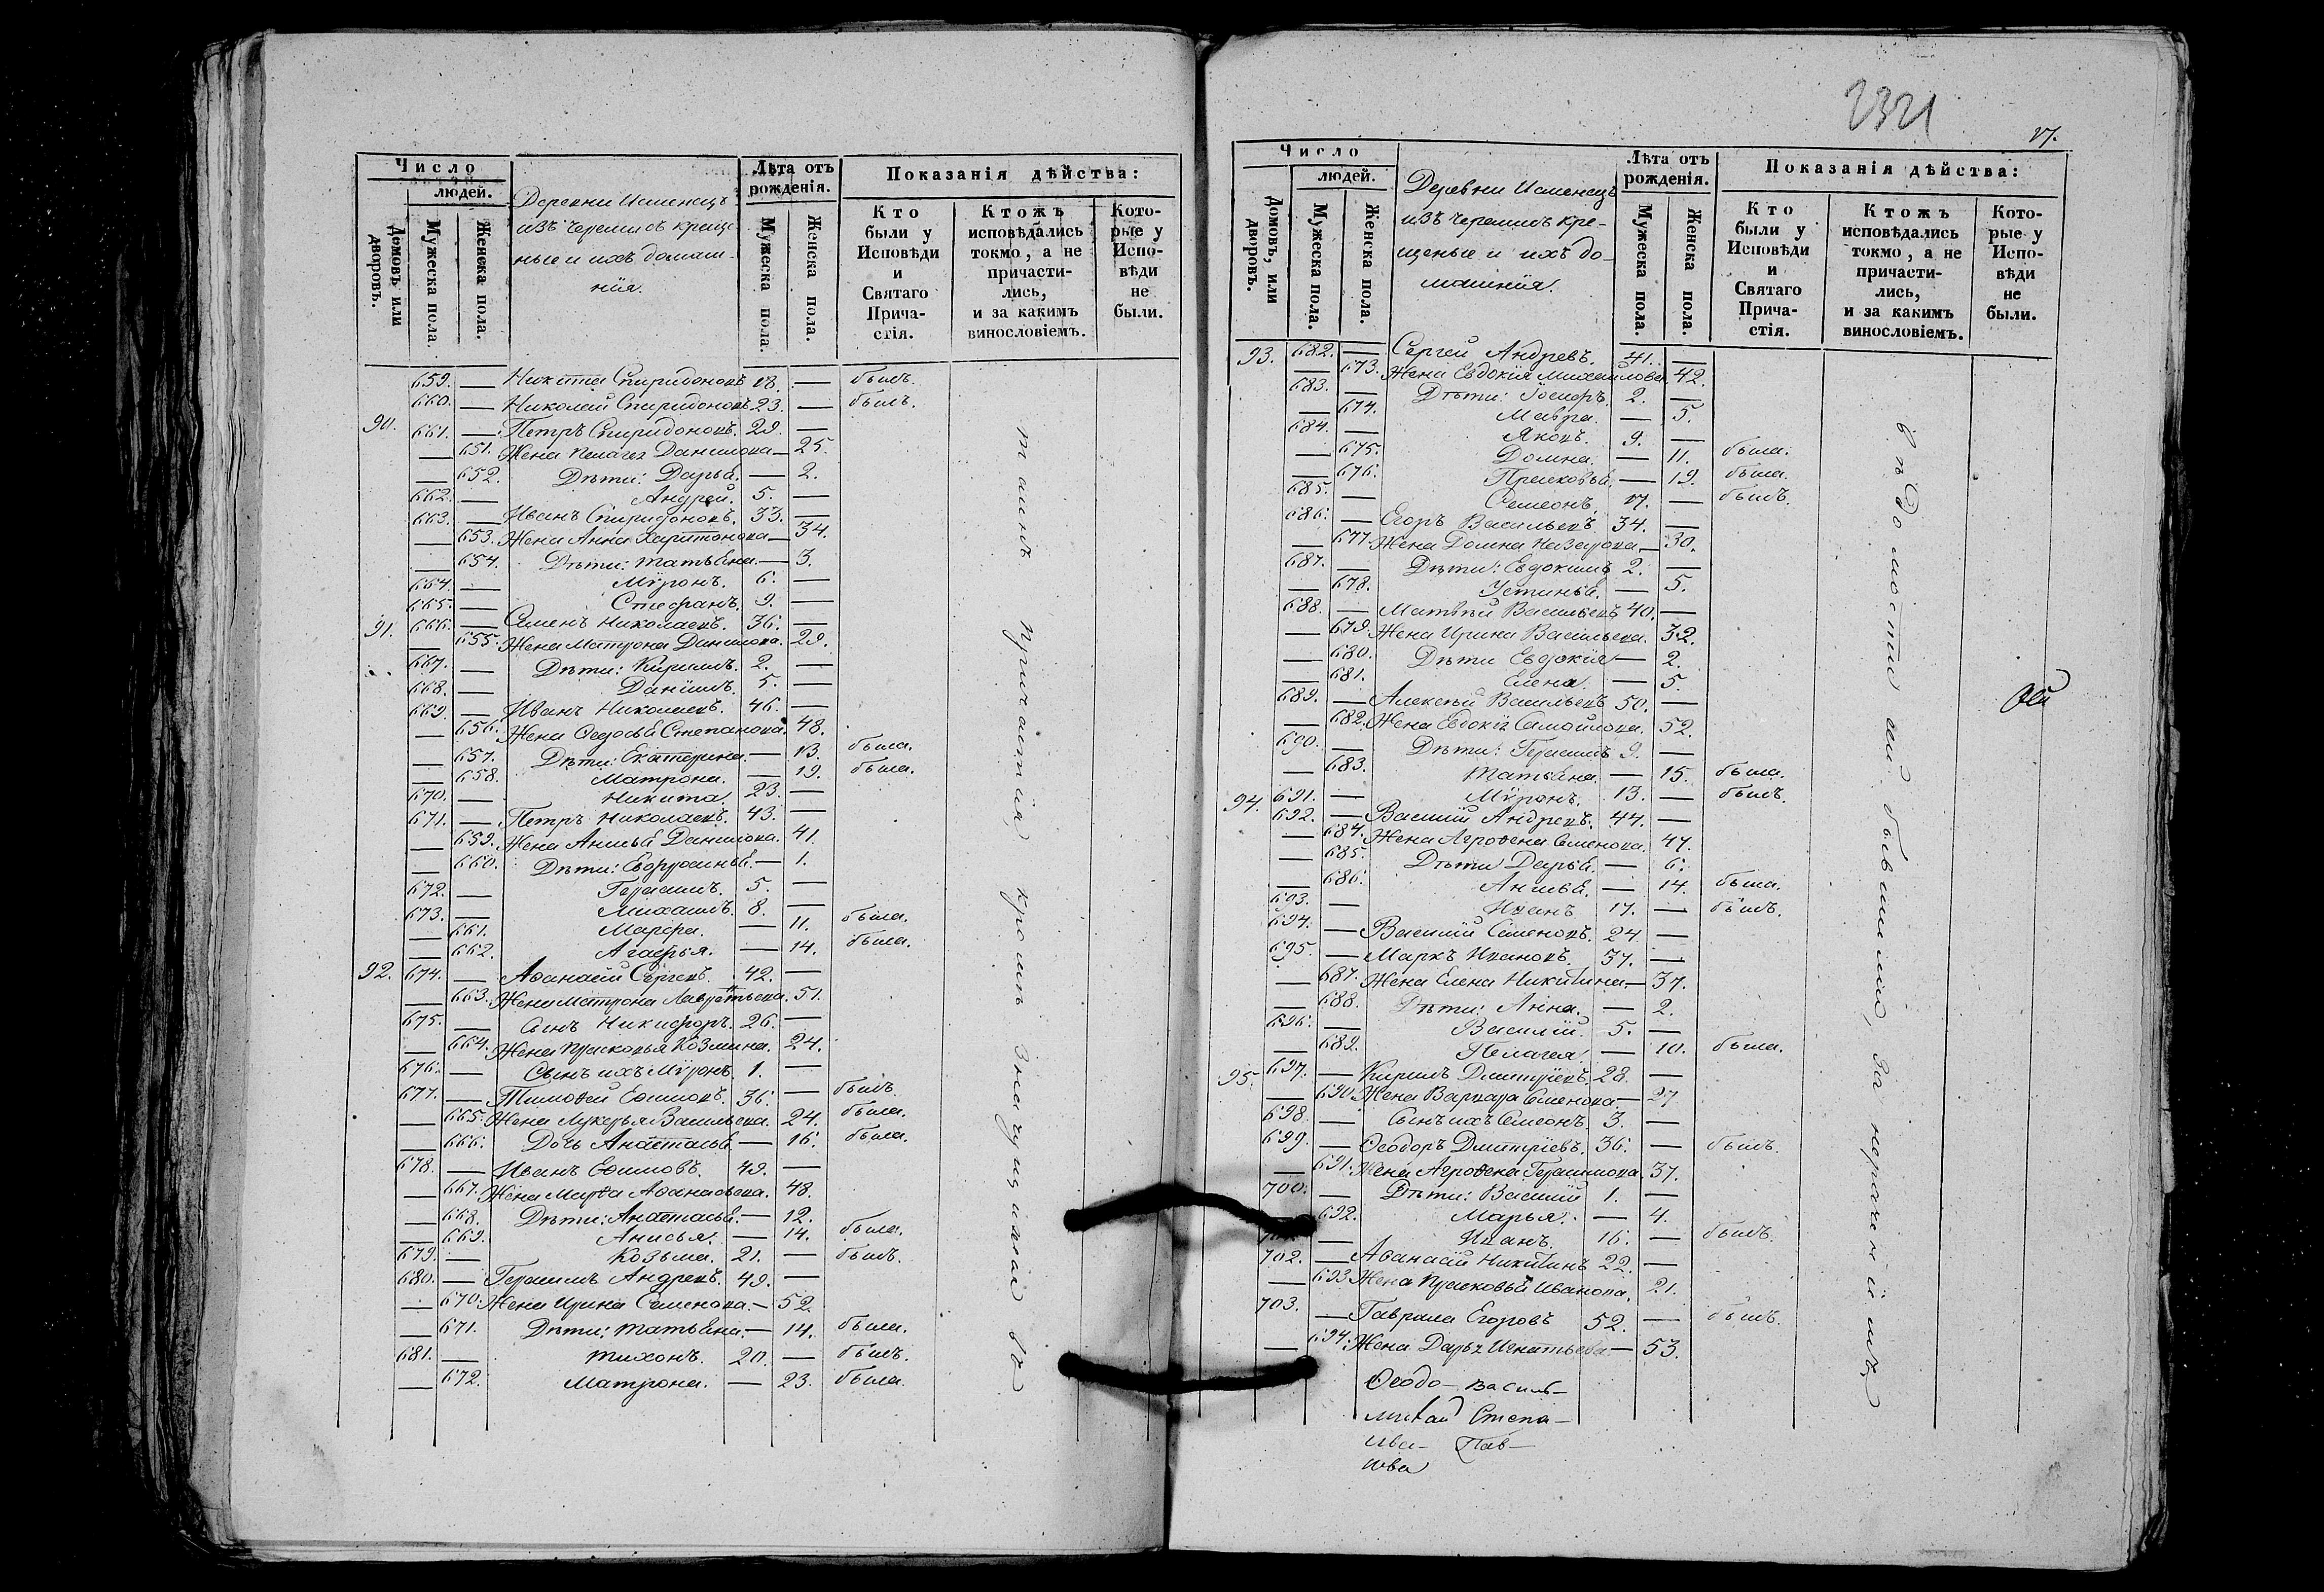 Число
людей.
Домовъ или дворовъ.
Мужеска пола.
Женска пола.
Деревни Исменецъ
изъ черемисъ креще
ные и ихъ домаш-
нія.
Лѣта отъ рожденія.
Мужеска пола.
Женска пола.
Показанія дѣйства:
Кто были у Исповѣди и Святаго Прича-стія.
Ктожъ исповѣдались токмо, а не причасти-лись, и за какимъ винословіемъ.
Кото-рые у Испо-вѣди не были.
659. — Никита Спиридоновъ 18. — былъ.
660. — Николай Спиридоновъ 23. — былъ.
90. 661. — Петръ Спиридоновъ. 29. —
— 651. Жена Пелагея Данилова — 25.
— 652. Дѣти: Дарья. — 2.
662. — Андрей. 5. —
663. — Иванъ Спиридоновъ. 33. —
— 653. Жена Анна Харитонова — 34.
— 654. Дѣти: Татьяна. — 3.
664. — Мѵронъ. 6. —
665. — Стефанъ. 9. —
91. 666. — Семенъ Николаевъ. 36. —
— 655. Жена Матрона Данилова. 29.
667. — Дѣти: Кирилъ. 2. —
668. — Данiилъ. 5. —
669. — Иванъ Николаевъ. 46. —
— 656. Жена Федосья Степанова. 48.
— 657. Дѣти: Екатерина. — 13. была.
— 658. Матрона. — 19. была.
670. — Никита. 23. —
671. — Петръ Николаевъ. 43. —
— 659. Жена Анисья Данилова. 41.
— 660. Дѣти: Евфросинья. — 1.
672. — Герасимъ. 5. —
673. — Михаилъ. 8. —
— 661. Марфа. — 11. была.
— 662. Агафья. — 14. была.
92. 674. — Аѳанасій Сергѣевъ. 42. —
— 663. Жена Матрона Лаврентьева. 51.
675. — Сынъ Никифоръ. 26. —
— 664. Жена Прасковья Козмина. 24.
676. — Сынъ ихъ Мѵронъ. 1. —
677. — Тимоѳей Еѳимовъ. 36. — былъ
— 665. Жена Лукерья Васильева. 24. была.
— 666. Дочь Анастасья — 16. была.
678. — Иванъ Еѳимовъ. 49. —
— 667. Жена Марѳа Аѳанасьева. 48.
— 668. Дѣти: Анастасья. — 12.
— 669. Анисья. — 14. была.
679. — Козьма. 21. — былъ.
680. — Герасимъ Андреевъ. 49. —
— 670. Жена Ирина Семенова. — 52.
— 671. Дѣти: Татьяна. — 14. была.
681. — Тихонъ. 20. — былъ.
— 672. Матрона. — 23. была.
таинъ причастія, кромѣ значущимся во
2321
17.
Число
людей.
Домовъ, или дворовъ.
Мужеска пола.
Женска пола.
Деревни Исменецъ
изъ черемисъ кре-
щеные и ихъ до-
машнія.
Лѣта отъ рожденія.
Мужеска пола.
Женска пола.
Показанія дѣйства:
Кто были у Исповѣди и Святаго Прича-стія.
Ктожъ исповѣдались токмо, а не причасти-лись, и за какимъ винословіемъ.
Кото-рые у Испо-вѣди не были.
93. 682. — Сергей Андревъ. 41. —
— 673. Жена Евдокія Михайлова 42.
683. — Дѣти: Ѳедоръ. 2. —
— 674. Мавра. — 5.
684. — Яковъ. 9. —
— 675. Домна. — 11. была.
— 676. Прасковья. — 19. была.
685. — Семеонъ. 17. — былъ.
686. — Егоръ Васильевъ 34. —
— 677. Жена Домна Назарова — 30.
687. — Дѣти: Евдокимъ 2. —
— 678. Устинья. — 5.
688. — Матвѣй Васильевъ 40. —
— 679. Жена Ирина Васильева. 32.
— 680. Дѣти Евдокія — 2.
— 681. Елена. — 5.
689. — Алексѣй Васильевъ 50. —
— 682. Жена Евдокія Самойлова. 52.
690. — Дѣти: Герасимъ 9. —
— 683. Татьяна. — 15. была.
691. — Мѵронъ. 13. — былъ.
94. 692. — Василій Андреевъ. 44. —
— 684. Жена Агроѳена Семенова. 47.
— 685. Дѣти Дарья. — 6.
— 686. Анисья. — 14. была.
693. — Иванъ 17. — былъ.
694. — Василій Семеновъ. 24. —
695. — Маркъ Ивановъ. 37. —
— 687. Жена Елена Никитина — 37.
— 688. Дѣти: Анна. — 2.
696. — Василій. 5. —
— 689. Пелагея. — 10. была.
95. 697. — Кирилъ Дмитріевъ. 28. —
— 690. Жена Варвара Семенова — 27
698. — Сынъ ихъ Семеонъ. 3. —
699. — Ѳеодоръ Дмитріевъ. 36. — былъ.
— 691. Жена Агроѳена Герасимова. 37.
700. — Дѣти: Василій 1. —
692. Марья. — 4.
— Иванъ. 16. — былъ.
702. — Аѳанасій Никитинъ 22. —
— 693 Жена Прасковья Иванова. 21.
703. — Гаврила Егоровъ 52. — былъ.
— 694. Жена Дарья Игнатьева — 53.
вѣдомости не бывшимъ, за нераченіемъ
Ѳеодо- Василь-
Степа-
Ива- Пав-